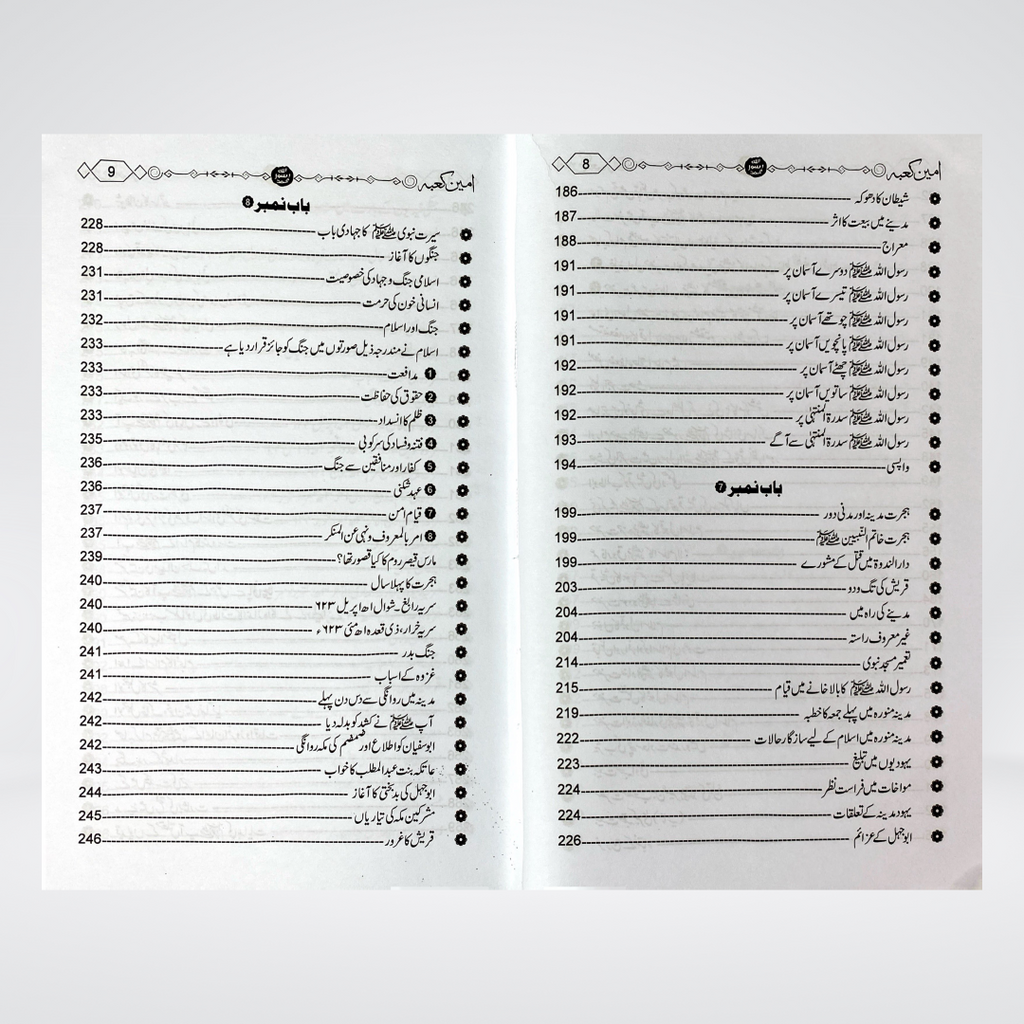 امین کعبہ 8
شیطان کا دھوکہ 186
مدینے میں بیعت کا اثر 187
معراج 188
رسول اللہ ﷺ دوسرے آسمان پر 191
رسول اللہ ﷺ تیسرے آسمان پر 191
رسول اللہ ﷺ چوتھے آسمان پر 191
رسول اللہ ﷺ پانچویں آسمان پر 191
رسول اللہ ﷺ چھٹے آسمان پر 192
رسول اللہ ﷺ ساتویں آسمان پر 192
رسول اللہ ﷺ سدرۃ المنتہیٰ پر 192
رسول اللہ ﷺ سدرۃ المنتہیٰ سے آگے 193
واپسی 194
باب نمبر 7
ہجرت مدینہ اور مدنی دور 199
ہجرت خاتم النبیین ﷺ 199
دار الندوۃ میں قتل کے مشورے 199
قریش کی تگ و دو 203
مدینے کی راہ میں 204
غیر معروف راستہ 204
تعمیر مسجد نبوی 214
رسول اللہ ﷺ کا بالا خانے میں قیام 215
مدینہ منورہ میں پہلے جمعہ کا خطبہ 219
مدینہ منورہ میں اسلام کے لیے سازگار حالات 222
یہودیوں میں تبلیغ 223
مواخات میں فراست نظر 224
یہود مدینہ کے تعلقات 224
ابو جہل کے عزائم 226
امین کعبہ 9
باب نمبر 8
سیرت نبوی ﷺ کا جہادی باب 228
جنگوں کا آغاز 228
اسلامی جنگ و جہاد کی خصوصیت 231
انسانی خون کی حرمت 231
جنگ اور اسلام 232
اسلام نے مندرجہ ذیل صورتوں میں جنگ کو جائز قرار دیا ہے 233
1 مدافعت 233
2 حقوق کی حفاظت 233
3 ظلم کا انسداد 233
4 فتنہ و فساد کی سرکوبی 235
5 کفار اور منافقین سے جنگ 236
6 عہد شکنی 236
7 قیام امن 237
8 امر بالمعروف ونہی عن المنکر 237
مارس قیصر روم کا کیا قصور تھا؟ 239
ہجرت کا پہلا سال 240
سریہ رابغ۔شوال ۱ھ اپریل ۶۲۳ 240
سریہ خرار، ذی قعدہ ۱ھ مئی ۶۲۳ء 240
جنگ بدر 241
غزوہ کے اسباب 241
مدینہ میں روانگی سے دس دن پہلے 242
آپ ﷺ نے کشد کو بدلہ دیا 242
ابو سفیان کو اطلاع اور ضمضم کی مکہ روانگی 242
عاتکہ بنت عبدالمطلب کا خواب 243
ابو جہل کی بدبختی کا آغاز 244
مشرکین مکہ کی تیاریاں 245
قریش کا غرور 246